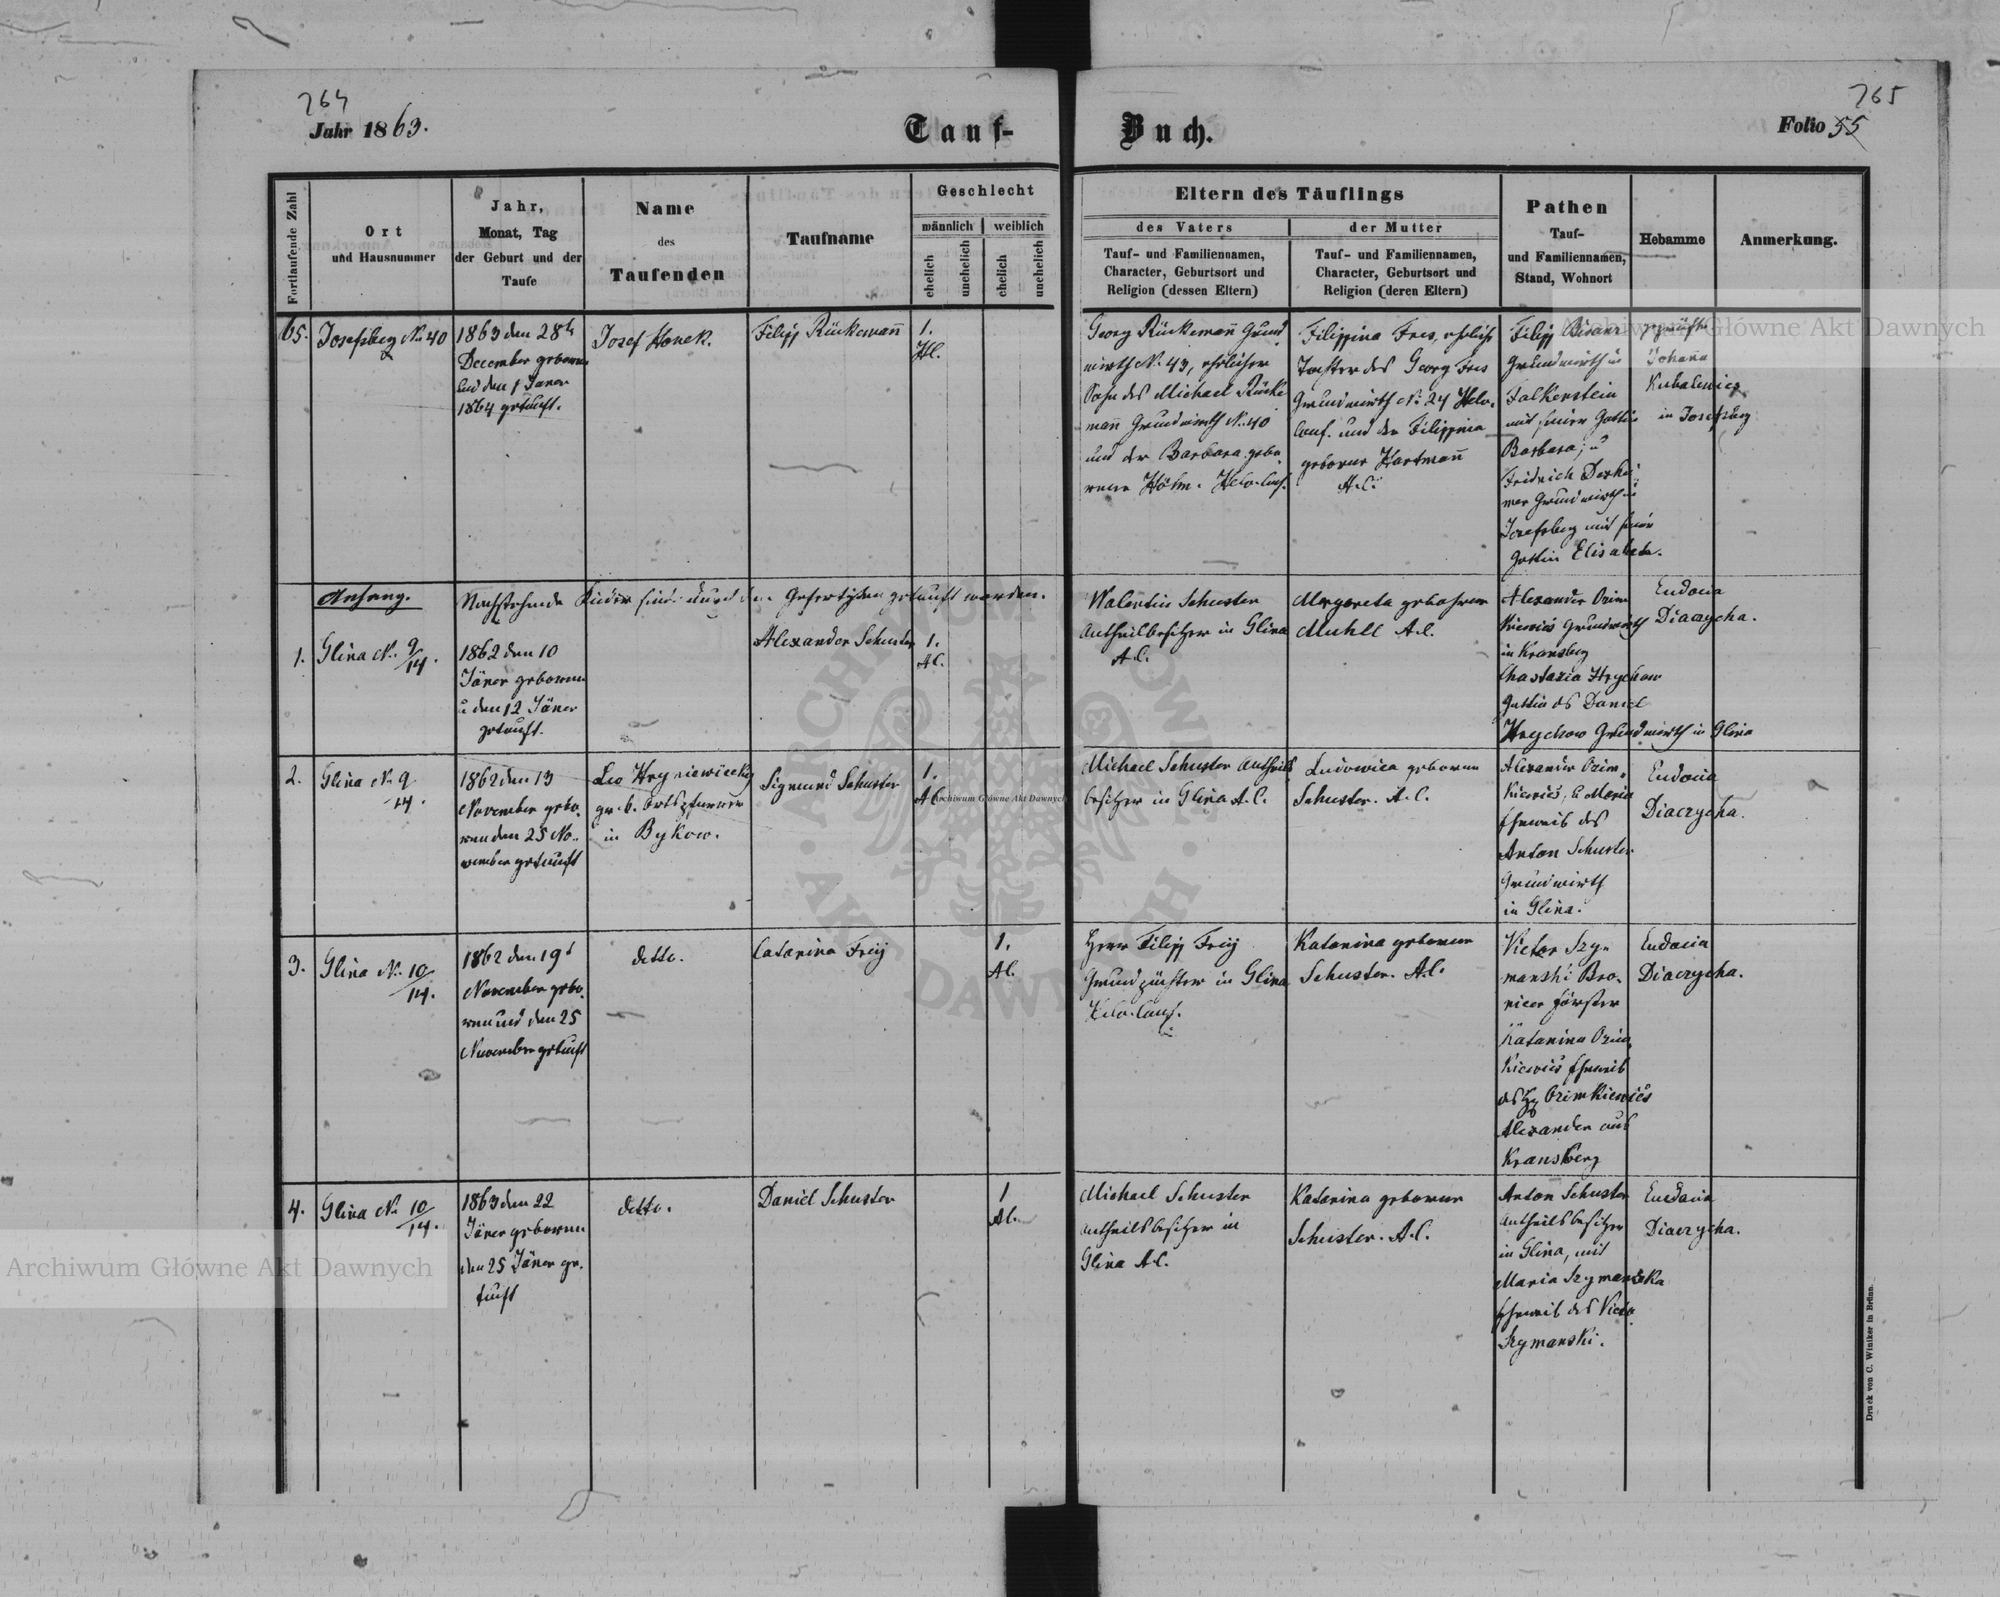 764
Jahr 1863.
Tauf-
Buch.
765
Folio 55
Fortlaufende Zahl
Ort
und Hausnummer
Jahr,
Monat, Tag
der Geburt und der
Taufe
Name
des
Taufenden
Taufname
Geschlecht
männlich
weiblich
ehelich
unehelich
ehelich
unehelich
Eltern des Täuflings
des Vaters
Tauf- und Familiennamen,
Character, Geburtsort und
Religion (dessen Eltern)
der Mutter
Tauf- und Familiennamen,
Character, Geburtsort und
Religion (deren Eltern)
Pathen
Tauf-
und Familiennamen,
Stand, Wohnort
Hebamme
Anmerkung.
65.
Josefsberg No 40
1863 den 28t
December geboren
und den 1 Jäner
1864 getauft.
Josef Honek.
Filipp Rückemañ
1.
Hl.
Georg Rückemañ Grund
wirth No 43, ehelicher
Sohn des Michael Rücke
mañ Grundwirth No 40
und der Barbara gebo
rene Höhn. Helv. Conf.
Filippina Fres, eheliche
Tochter des Georg Fres
Grundwirth No 24 Helv.
Conf. und der Filippina
geborene Hartmañ
A.C.
Filipp
Grundwirth in
Falkenstein
mit seiner Gattin
Barbara; u
Fridrich
mer Grundwirth in
Josefsberg mit seiner
Gattin Elisabeta.
geprüfte
Johana
in Josefsberg
Anhang.
Nachstehende Kinder sind durch den Gefertigten getauft worden.
1.
Glina No 9/14.
1862 den 10
Jäner geboren
u den 12 Jäner
getauft.
Alexander Schuster
1.
AC.
Walentin Schuster
Antheilbesitzer in Glina
A.C.
Margareta gebohrene
Muhll A.C.
Alexander Ozim
kiewicš Grundwirth
in Kransberg
Anastazia Hrychow
Gattin ds Daniel
Hrychow Grundwirth in Glina
Eudocia
Diaczycha.
2.
Glina No 9/14.
1862 den 13
November gebo.
ren den 25 No.
vember getauft
Leo Hryniewiecky
gr. k. Ortspfarrer
in Bykow.
Sigmund Schuster
1.
AC.
Michael Schuster Antheils
besitzer in Glina A.C.
Ludowica geborene
Schuster. A.C.
Alexander Ozim,
kiewicš, u Maria
Eheweib des
Anton Schuster
Grundwirth
in Glina.
Eudocia
Diaczycha.
3.
Glina No 10/14.
1862 den 19t
November gebo.
ren und den 25
November getauft
detto.
Catarina Freÿ
1.
AC.
Herr Filipp Freÿ
Grundpächter in Glina
Helv. Conf.
Katarina geborene
Schuster. A.C.
Victor Szy-
manski Bro.
nicer Förster
Katarina Ozim,
kiewicš Eheweib
ds Ozimkiewicš
Alexander aus
Kransberg
Eudocia
Diaczycha.
4.
Glina No 10/14.
1863 den 22
Jäner geboren
den 25 Jäner ge.
tauft
detto.
Daniel Schuster
1
AC.
Michael Schuster
Antheilsbesitzer in
Glina AC.
Katarina geborene
Schuster. A.C.
Anton Schuster
Antheilsbesitzer
in Glina, mit
Maria Szymanska
Eheweib des Victor
Szymanski.
Eudocia
Diaczycha.
Druck von C. Winiker in Brünn.
Archiwum Główne Akt Dawnych
Archiwum Główne Akt Dawnych
Archiwum Główne Akt Dawnych
ARCHIWUM GŁÓWNE · AKT DAWNYCH ·